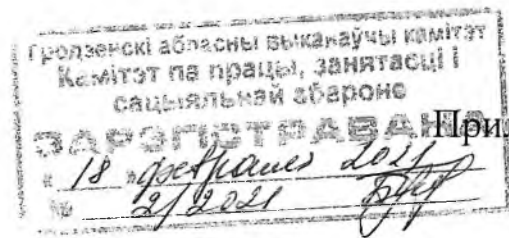 Гродзенскі абласны выканаўчы камітэт
Камітэт па працы, занятасці і
сацыяльнай абароне
ЗАРЭГІСТРАВАНА При
" 18 " февраля 2021
№ 2/2021